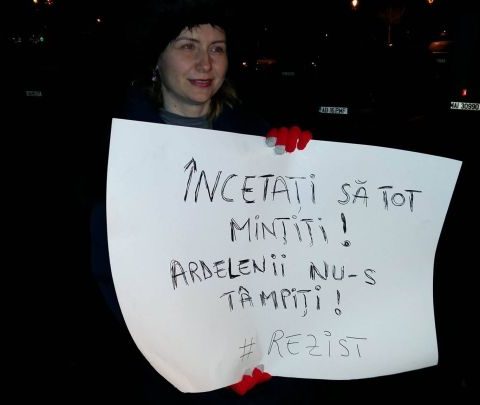 ÎNCETAȚI SĂ TOT
MINȚIȚI!
ARDELENII NU-S
TÂMPIȚI!
# REZIST